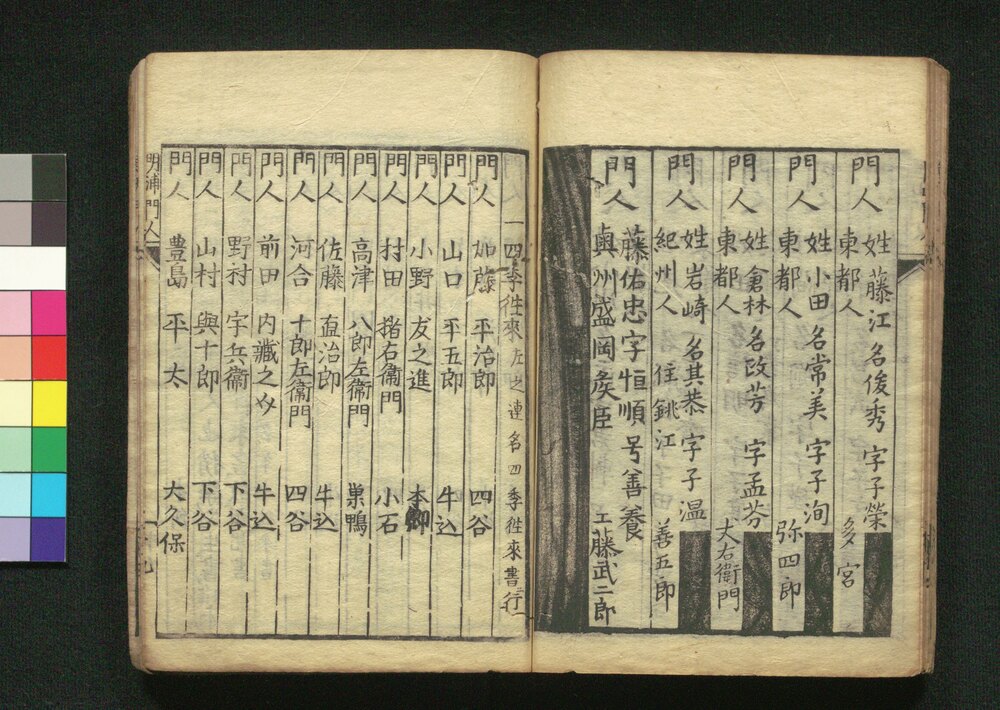 門人 姓藤江 名俊秀 字子榮
東都人 多宮
門人 姓小田 名常美 字子洵
東都人 弥四郎
門人 姓倉林 名政芳 字孟芬
東都人 犬右衛門
門人 姓岩崎 名其恭 字子温
紀州人 住銚江 善五郎
門人 藤佑忠 字恒順 号善養
奥州盛岡矦臣 工藤武二郎
一四季徃來 左之連名四季徃來書行
門人 加藤 平治郎 四谷
門人 山口 平五郎 牛込
門人 小野 友之進 本郷
門人 村田 猪右衛門 小石
門人 高津 八郎左衛門 巣鴨
門人 佐藤 直治郎 牛込
門人 河合 十郎左衛門 四谷
門人 前田 内藏之〆 牛込
門人 野村 宇兵衛 下谷
門人 山村 與十郎 下谷
門人 豊島 平太 大久保
門人